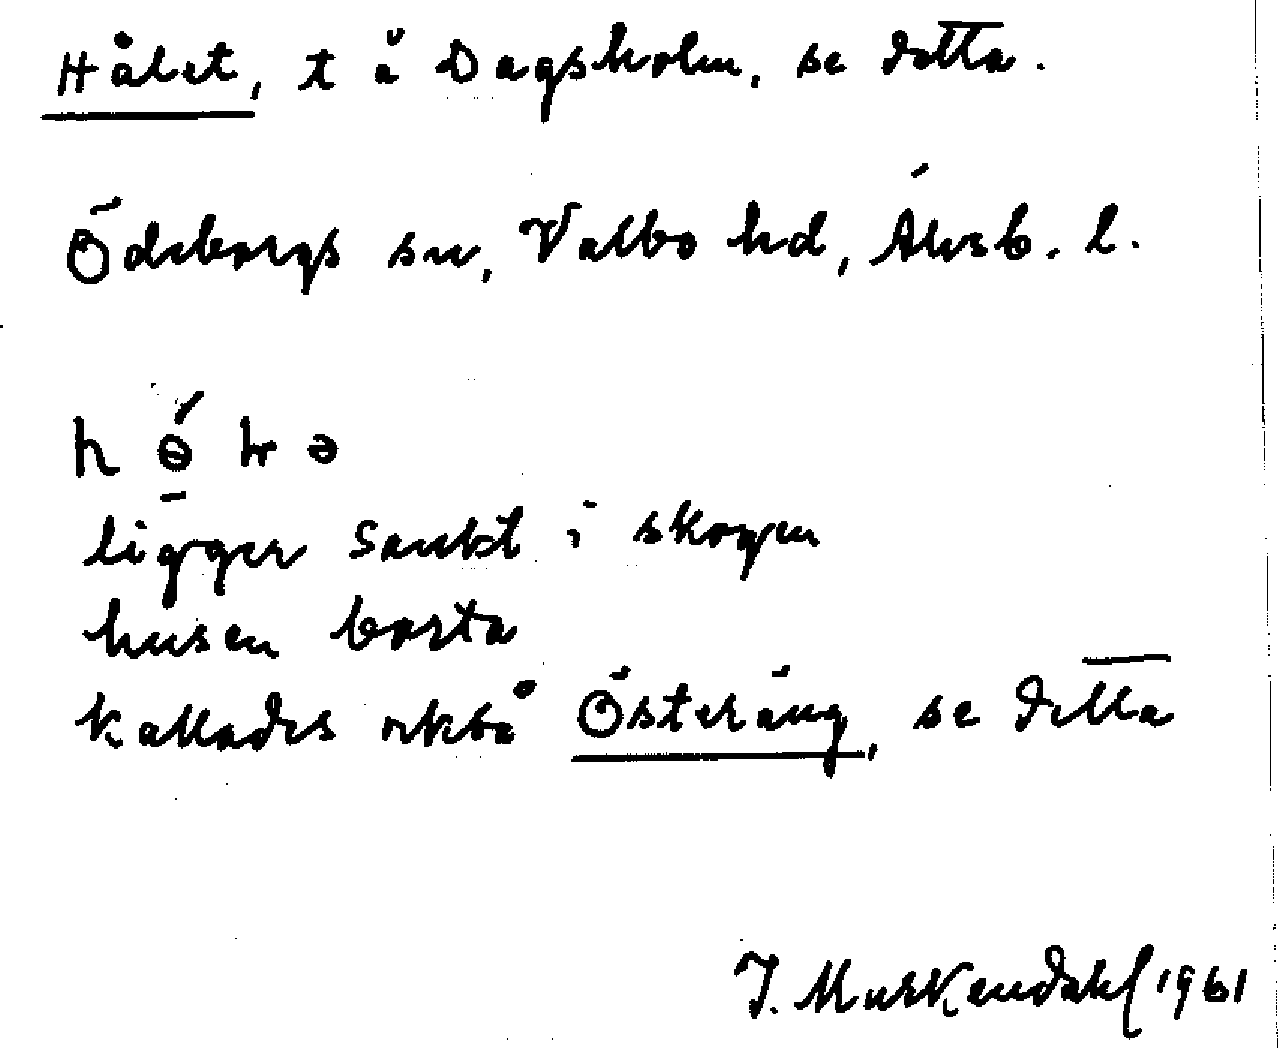 Hålet, t å Dagsholm, se detta.
Ödeborgs sn, Valbo hd, Älvsb. l.
ligger sankt i skogen
husen borta
kallades också Österäng, se detta
J. Muskendahl 1961